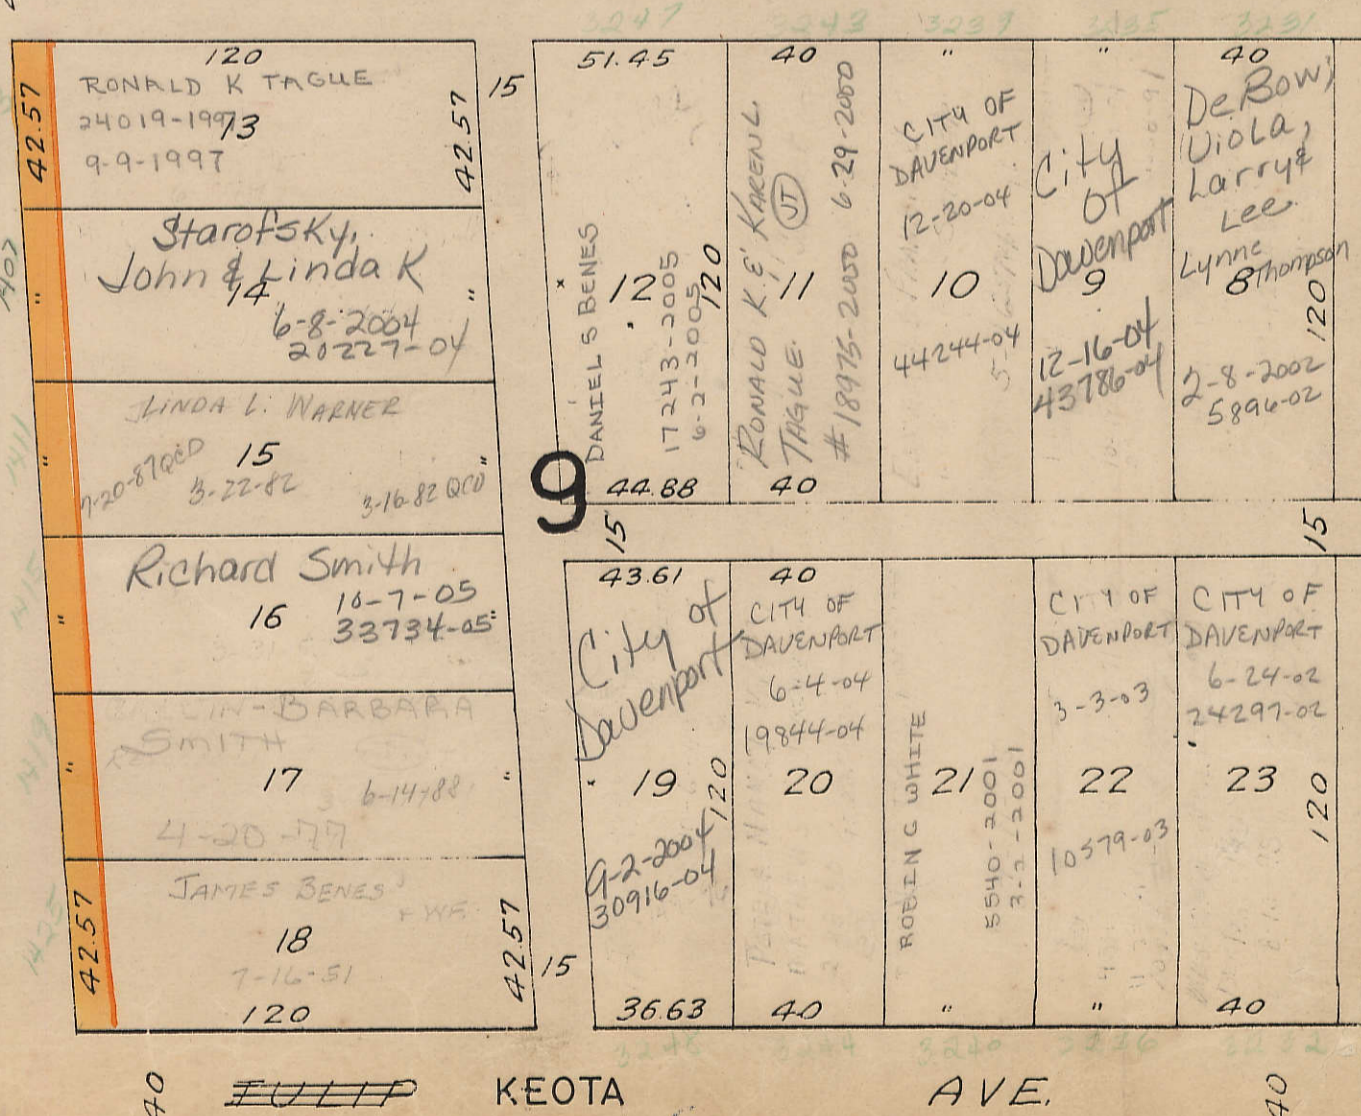 3247 3243 3239 3235 3231
120
RONALD K TAGUE
24019-1997
13
9-9-1997
42.57
42.57
15
Starofsky,
John & Linda K
14
6-8-2004
20227-04
"
"
1407
LINDA L. WARNER
15
7-20-87 QCD
3-22-82
3-16-82 QCD
"
"
1411
Richard Smith
16
10-7-05
33734-05
"
1415
BARBARA
SMITH
17
6-14-88
4-20-77
"
"
1419
JAMES BENES
+ WF
18
7-16-51
42.57
42.57
120
15
1425
9
51.45
DANIEL S BENES
12
17243-2005
6-2-2005
120
44.88
15
40
RONALD K. & KAREN L.
TAGUE.
JT
11
#18975-2000 6-29-2000
40
"
CITY OF
DAVENPORT
12-20-04
10
44244-04
"
City
Of
Davenport
9
12-16-04
43786-04
40
DeBow,
Viola,
Larry &
Lee
Lynne
Thompson
8
120
2-8-2002
5896-02
15
43.61
City of
Davenport
19
120
9-2-2004
30916-04
36.63
40
CITY OF
DAVENPORT
6-4-04
19844-04
20
40
ROBIN G WHITE
21
5540-2001
3-2-2001
"
CITY OF
DAVENPORT
3-3-03
22
10579-03
"
CITY OF
DAVENPORT
6-24-02
24297-02
23
120
40
3248 3244 3240 3236 3232
40
TULIP KEOTA AVE.
40